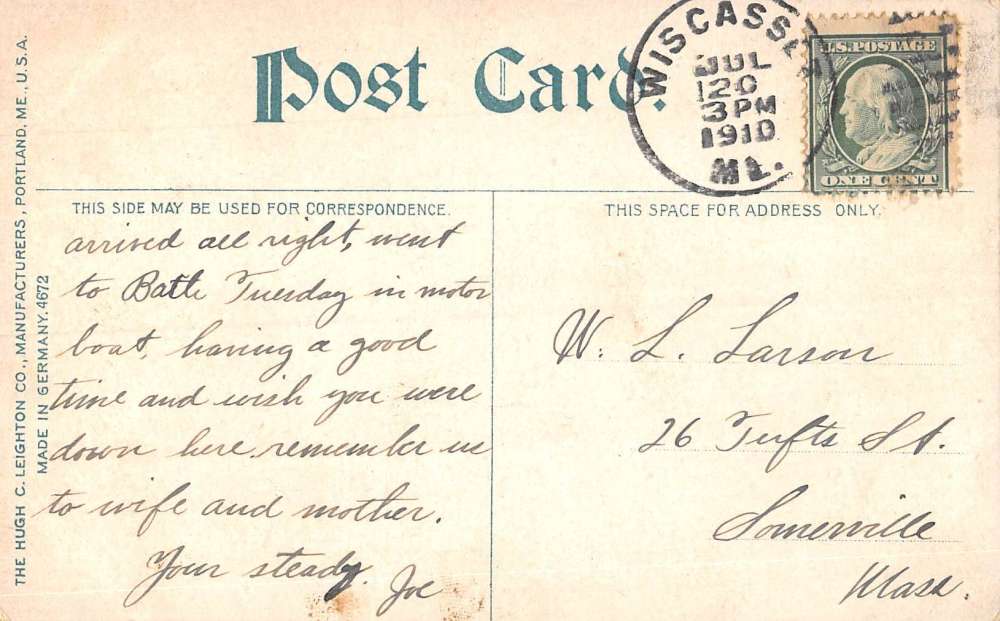 Post Card.
WISCASSET
JUL
20
3 PM
1910
ME.
U.S. POSTAGE
ONE CENT
THIS SIDE MAY BE USED FOR CORRESPONDENCE.
THIS SPACE FOR ADDRESS ONLY.
arrived all right, went
to Bath Tuesday in motor
boat, having a good
time and wish you were
down here. remember us
to wife and mother.
Your steady.
Joe
W. L. Larson
26 Tufts St.
Somerville
Mass.
THE HUGH C. LEIGHTON CO., MANUFACTURERS, PORTLAND, ME., U.S.A.
MADE IN GERMANY. 4672